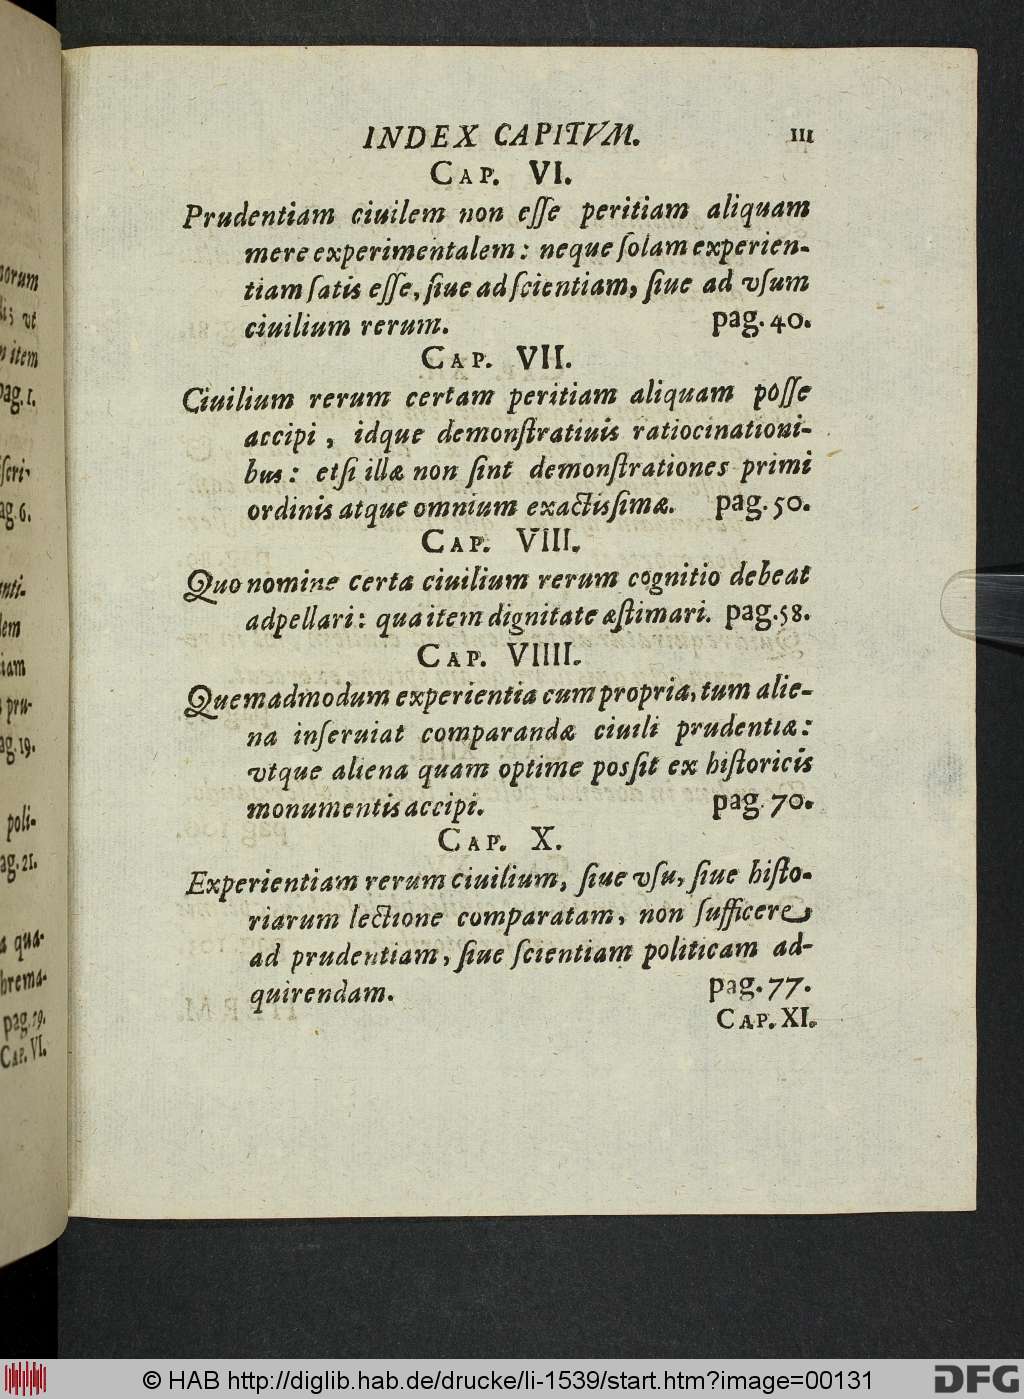 INDEX CAPITVM. III
CAP. VI.
Prudentiam ciuilem non eſſe peritiam aliquam
mere experimentalem: neque ſolam experien-
tiam ſatis eſſe, ſiue ad ſcientiam, ſiue ad vſum
ciuilium rerum. pag. 40.
CAP. VII.
Ciuilium rerum certam peritiam aliquam poſſe
accipi, idque demonſtratiuis ratiocinationi-
bus: etſi illæ non ſint demonſtrationes primi
ordinis atque omnium exactisſimæ. pag. 50.
CAP. VIII.
Quo nomine certa ciuilium rerum cognitio debeat
adpellari: qua item dignitate æſtimari. pag. 58.
CAP. VIIII.
Quemadmodum experientia cum propria, tum alie-
na inſeruiat comparandæ ciuili prudentiæ:
vtque aliena quam optime posſit ex hiſtoricis
monumentis accipi. pag. 70.
CAP. X.
Experientiam rerum ciuilium, ſiue vſu, ſiue hiſto-
riarum lectione comparatam, non ſufficere
ad prudentiam, ſiue ſcientiam politicam ad-
quirendam. pag. 77.
CAP. XI.
norum
vt
item
pag. 1.
ag. 6.
anti-
dem
tiam
pru-
ag. 19.
poli-
ag. 21.
a qua-
hrema-
pag. 29.
CAP. VI.
© HAB http://diglib.hab.de/drucke/li-1539/start.htm?image=00131
DFG